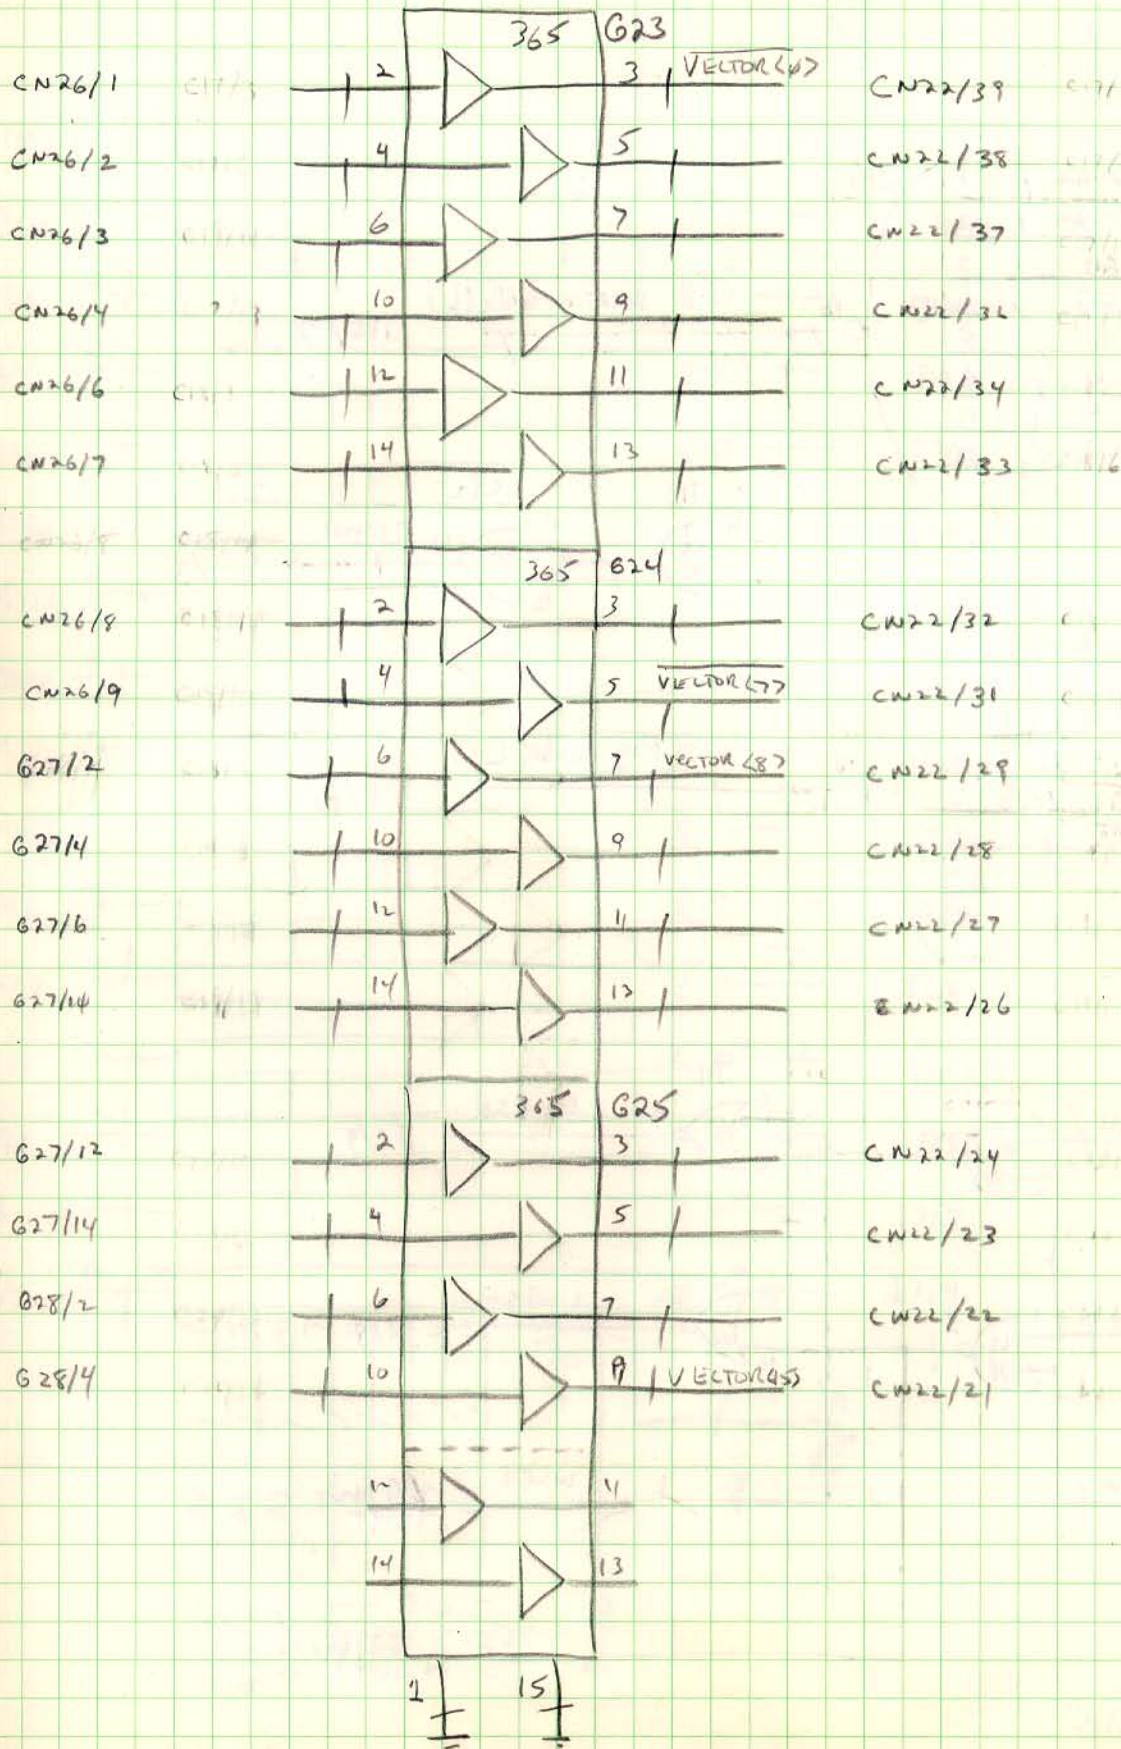 365 G23
CN26/1 2 3 VECTOR<0> CN22/39
CN26/2 4 5 CN22/38
CN26/3 6 7 CN22/37
CN26/4 10 9 CN22/36
CN26/6 12 11 CN22/34
CN26/7 14 13 CN22/33
365 G24
CN26/8 2 3 CN22/32
CN26/9 4 5 VECTOR<7> CN22/31
G27/2 6 7 VECTOR<8> CN22/29
G27/4 10 9 CN22/28
G27/6 12 11 CN22/27
G27/10 14 13 CN22/26
365 G25
G27/12 2 3 CN22/24
G27/14 4 5 CN22/23
G28/2 6 7 CN22/22
G28/4 10 9 VECTOR<15> CN22/21
12 11
14 13
1 15